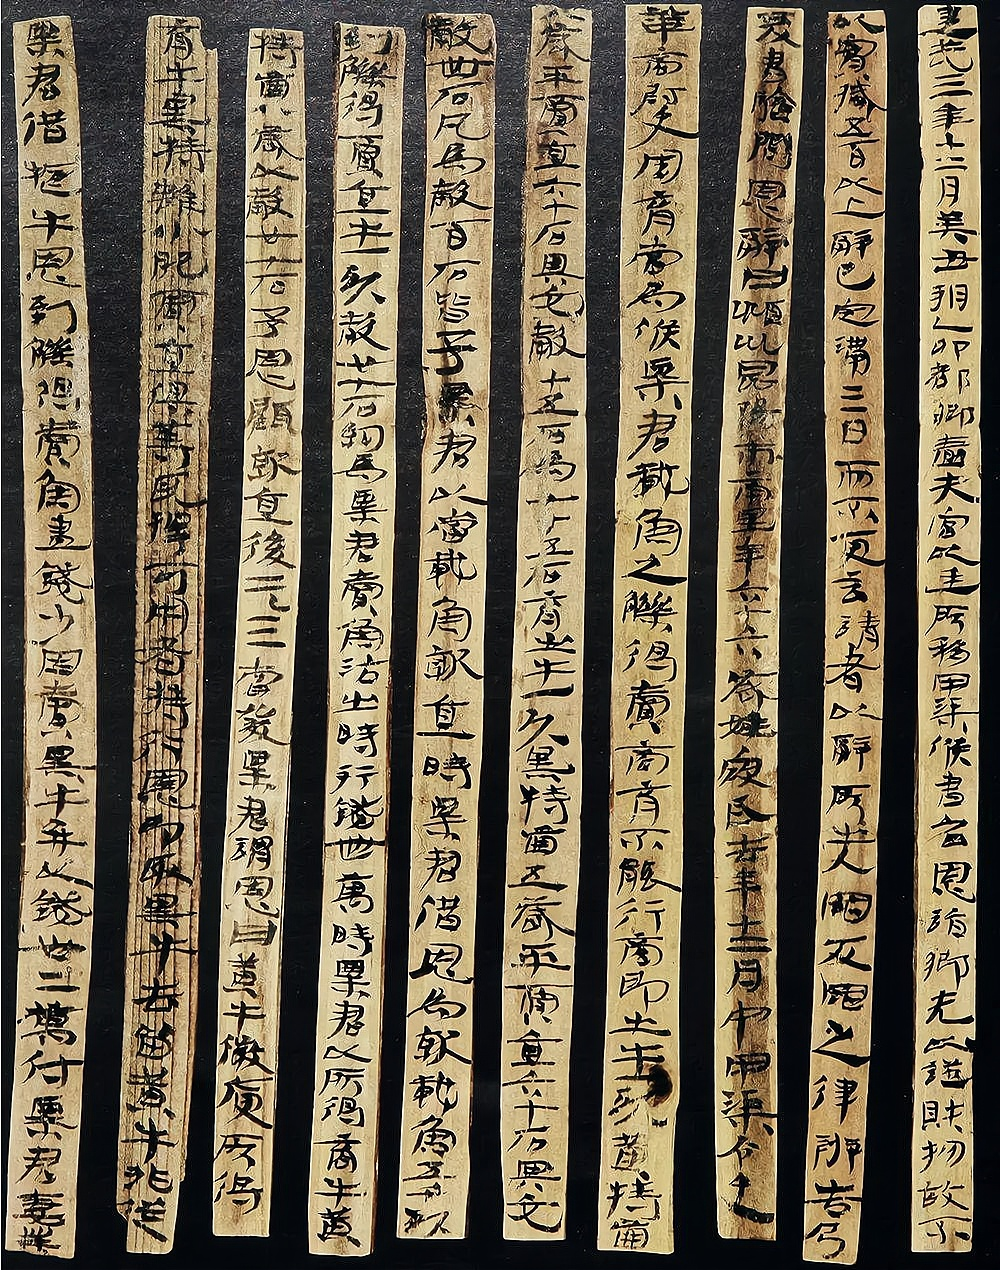 建武三年十二月癸丑朔乙卯都鄉嗇夫宮以廷所移甲渠候書召恩詣鄉先以證財物故不
以實臧五百以上辭已定滿三日而不更言請者以辭所出入罪反罪之律辨告乃
爰書驗問恩辭曰潁川昆陽市南里年六十六歲姓寇氏去年十二月中甲渠令史
華商尉史周育當為候粟君載魚之觻得賣商育不能行商即出牛一頭黃特齒
八歲平賈直六十石與它穀十五石為穀七十五石育出牛一頭黑特齒五歲平賈直六十石與它
穀卌石凡為穀百石皆予粟君以當載魚就直時粟君借恩為就載魚五千頭
到觻得賈直牛一頭穀廿七石約為粟君賣魚沽出時行錢卌萬時粟君以所得商牛黃
特齒八歲以穀廿七石予恩顧就直後二三日當發粟君謂恩曰黃牛微庾所得
育牛黑特雖小肥賈直俱等耳擇可用者持行恩即取黑牛去留黃牛非從
粟君借牛恩到觻得賣魚盡錢少因賣黑牛并以錢卅二萬付粟君妻業